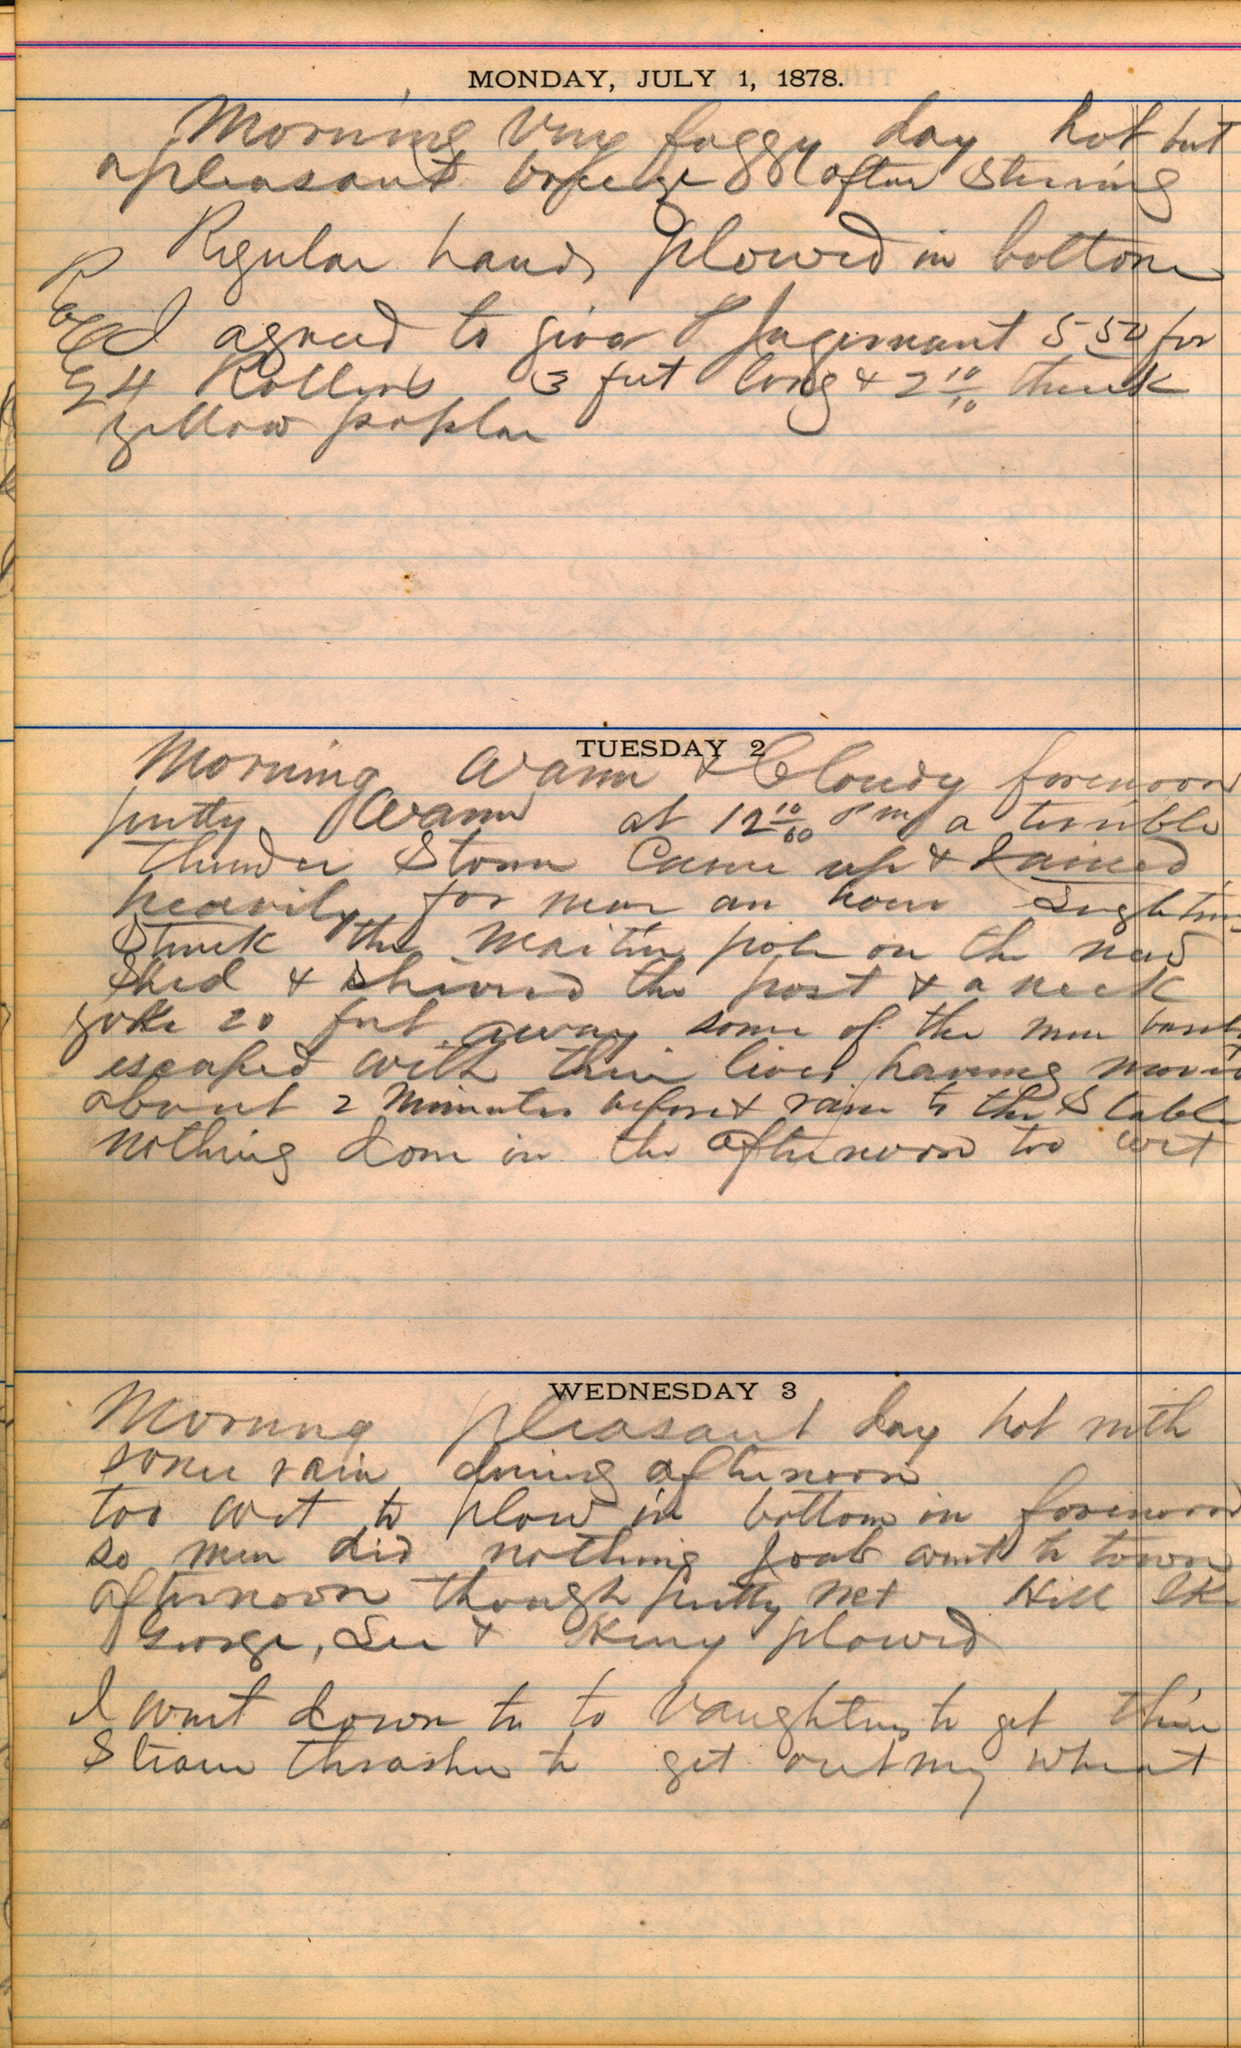 MONDAY, JULY 1, 1878.
Morning Very foggy day hot but
a pleasant breeze after
Regular hands plowed in bottom
I agreed to give 5 50 for
4 Rollers 3 feet long & 2 10/10 thick
yellow poplar
TUESDAY 2
Morning Warm & Cloudy forenoon
pretty Warm at 12 10/60 P m a terrible
thunder Storm Came up & rained
heavily for near an hour Lightning
Struck the Martin pole on the new
Shed & shivered the post & a neck
yoke 20 feet away some of the men barely
escaped with their lives having moved
about 2 Minutes before & ran to the Stable
nothing done in the afternoon too wet
WEDNESDAY 3
Morning pleasant day hot with
some rain during afternoon
too wet to plow in bottom in forenoon
so men did nothing went to town
afternoon though pretty wet Hill Ike
George, Lee & King plowed
I went down to to Vaughters to get their
Steam thrasher to get out my wheat